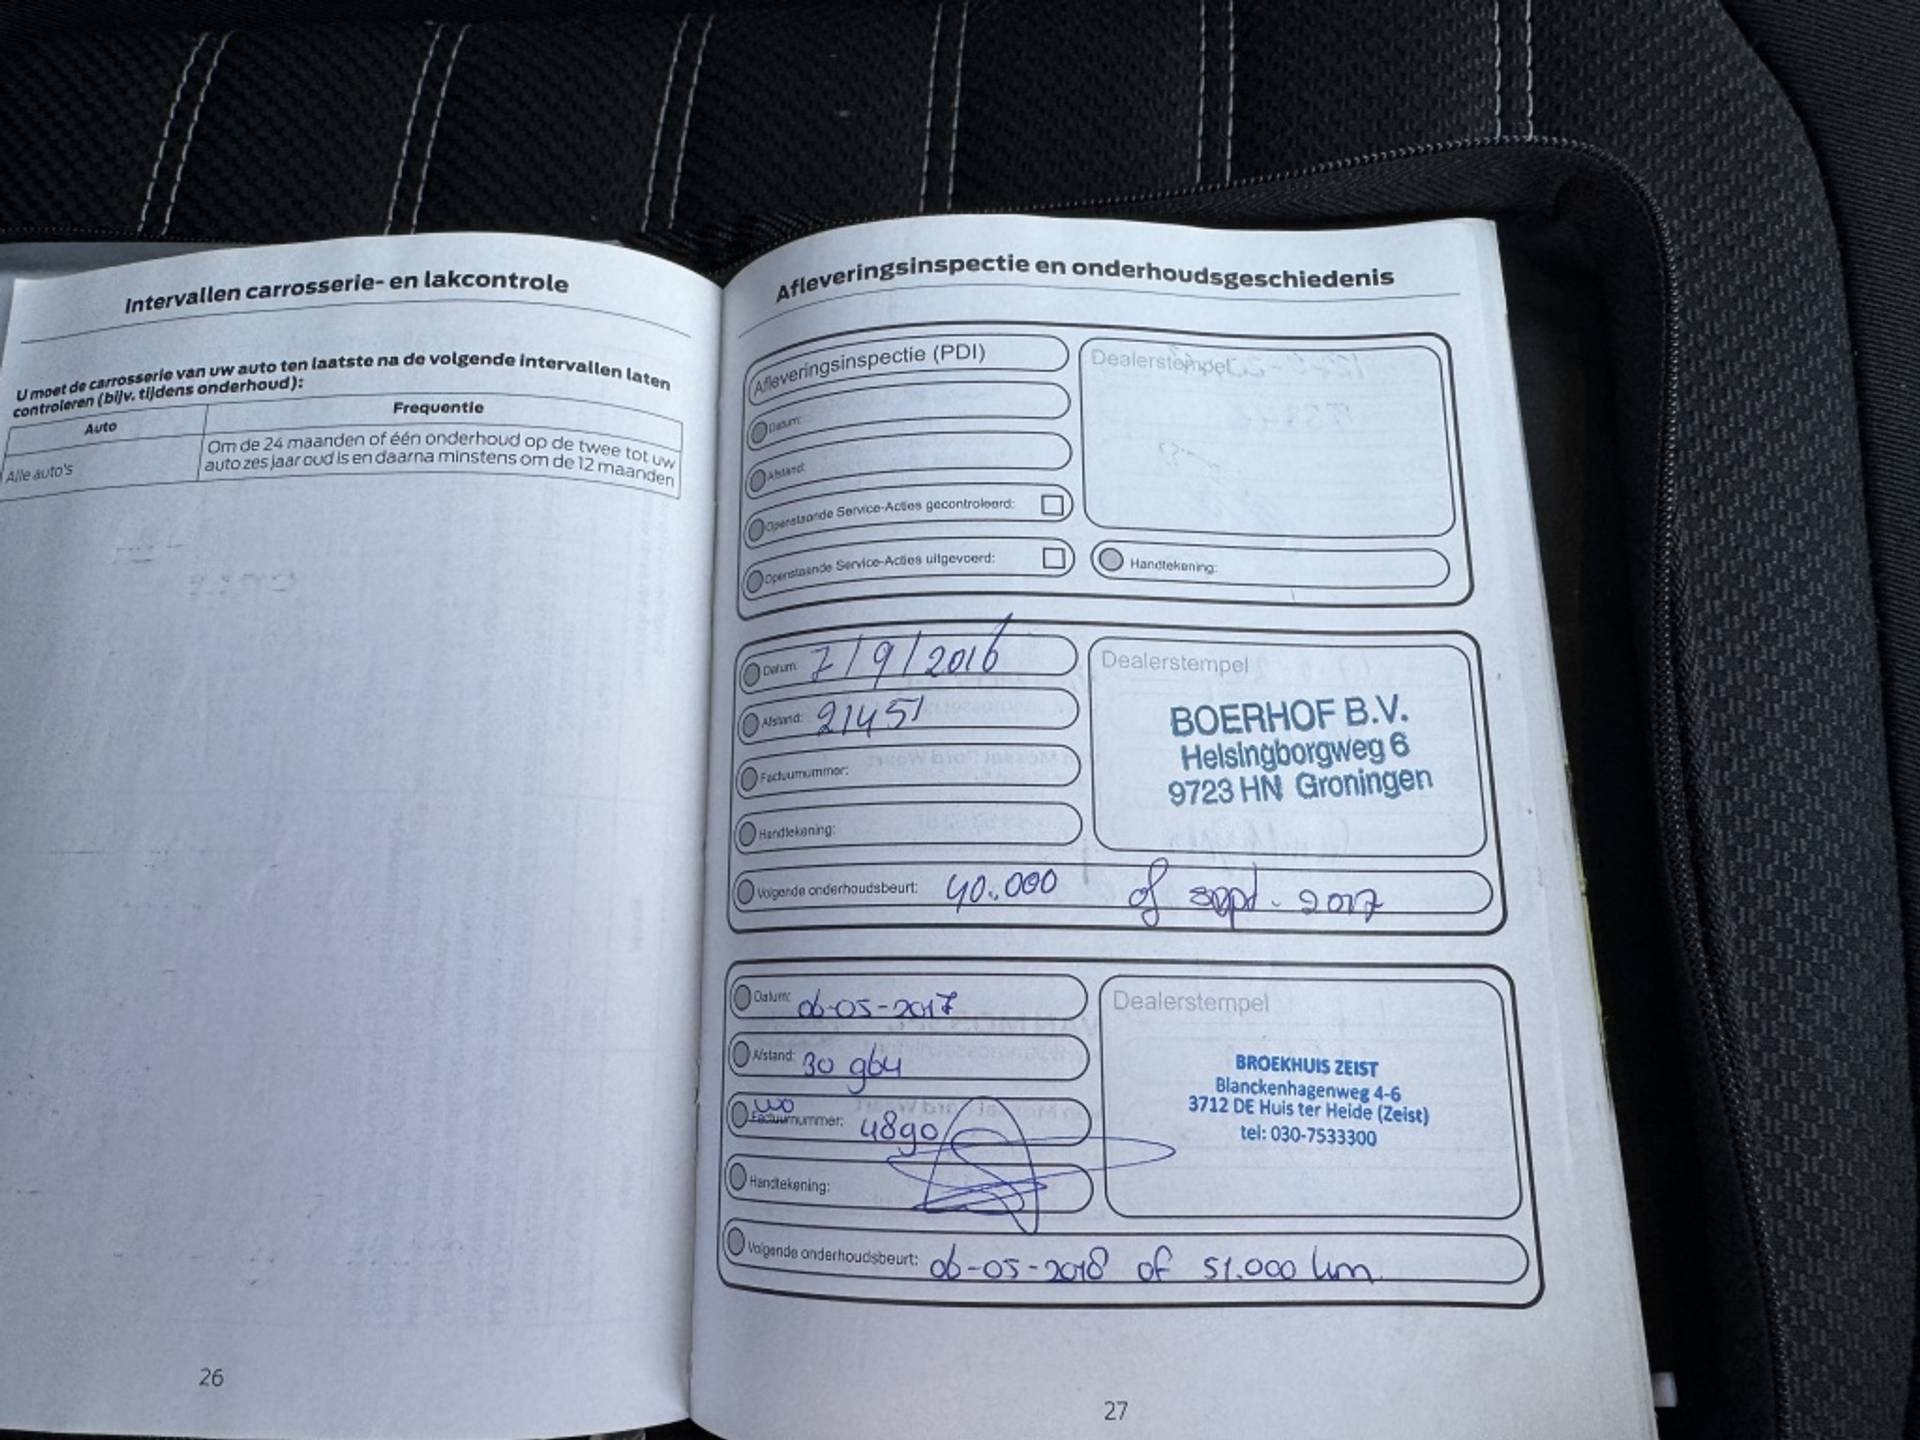 Intervallen carrosserie- en lakcontrole
U moet de carrosserie van uw auto ten laatste na de volgende intervallen laten
controleren (bijv. tijdens onderhoud):
Auto
Frequentie
Alle auto's
Om de 24 maanden of één onderhoud op de twee tot uw
auto zes jaar oud is en daarna minstens om de 12 maanden
26
Afleveringsinspectie en onderhoudsgeschiedenis
Afleveringsinspectie (PDI)
Datum:
Afstand:
Openstaande Service-Acties gecontroleerd:
Openstaande Service-Acties uitgevoerd:
Dealerstempel
Handtekening:
Datum: 7/9/2016
Afstand: 21451
Factuurnummer:
Handtekening:
Dealerstempel
BOERHOF B.V.
Helsingborgweg 6
9723 HN Groningen
Volgende onderhoudsbeurt: 40.000 of sept. 2017
Datum: 06-05-2017
Afstand: 30 964
WO
Factuurnummer: 4890
Handtekening:
Dealerstempel
BROEKHUIS ZEIST
Blanckenhagenweg 4-6
3712 DE Huis ter Heide (Zeist)
tel: 030-7533300
Volgende onderhoudsbeurt: 06-05-2018 of 51.000 km
27